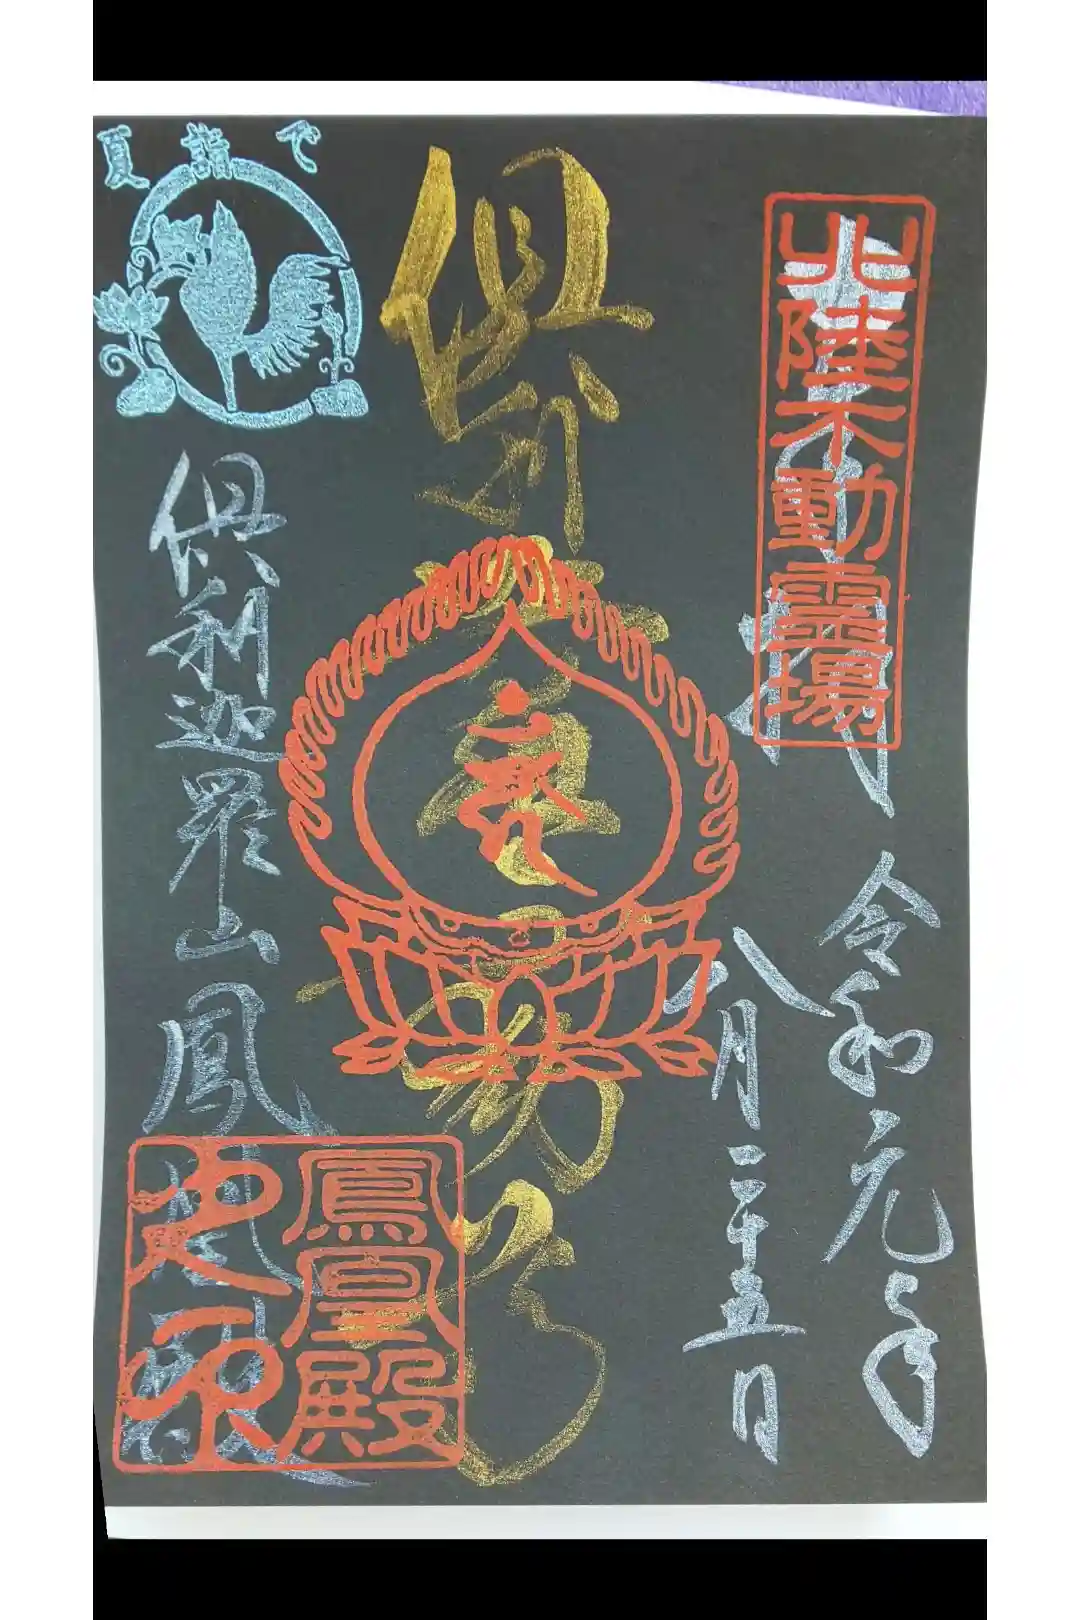 奉拝
北陸不動霊場
令和元年
八月二十五日
倶利迦羅不動尊
夏詣で
倶利迦羅山鳳凰殿
鳳凰殿
之印